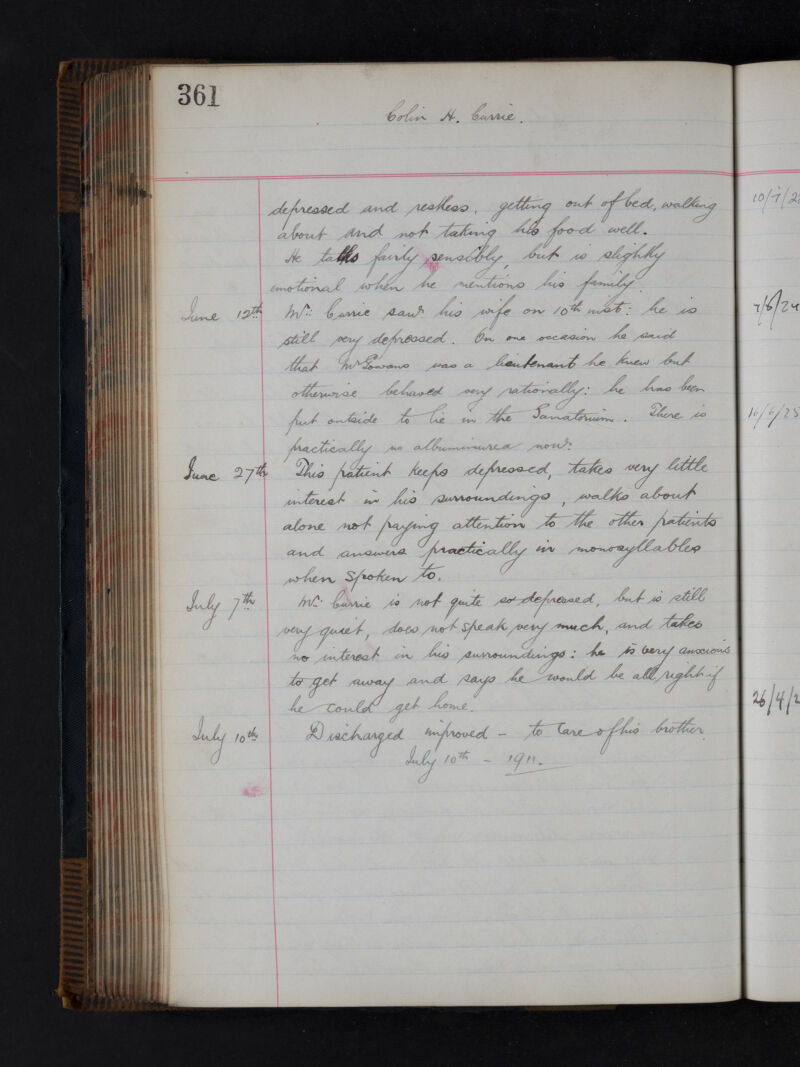 361
Colin H. Currie.
depressed and restless, getting out of bed, walking
about and not taking his food well.
He talks fairly sensibly, but is slightly
emotional when he mentions his family.
June 12th Mr. Currie saw his wife on 10th inst: he is
still very depressed. On one occasion he said
that Mr Gowans was a lieutenant he knew but
otherwise behaved very rationally: he has been
put outside to lie in the Sanatorium. There is
practically no albuminurea now.
June 27th This patient keeps depressed, takes very little
interest in his surroundings, walks about
alone not paying attention to the other patients
and answers practically in monosyllables
when spoken to.
July 7th Mr. Currie is not quite so depressed, but is still
very quiet, does not speak very much, and takes
no interest in his surroundings: he is very anxious
to get away and says he would be all right if
he could get home.
July 10th Discharged improved - to care of his brother.
July 10th - 1911.
10/7/2
7/8/24
10/6/25
26/4/2